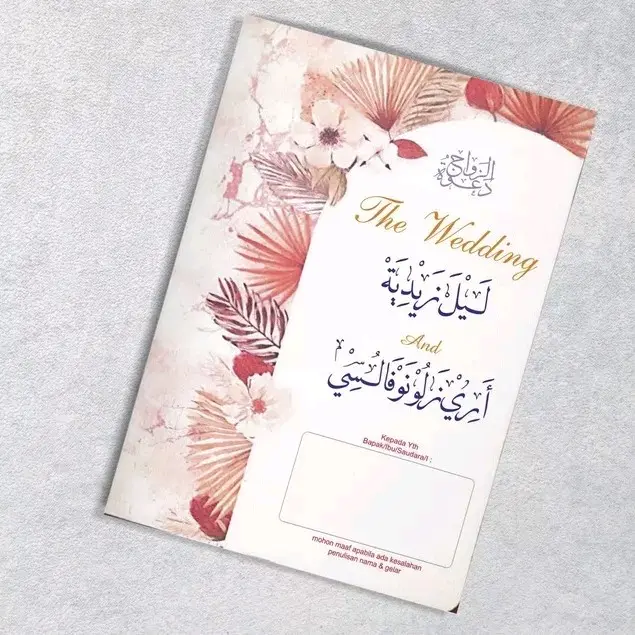 دعوة الزواج
The Wedding
لَيْلَ زَيْدِيَةْ
And
أَرِيْ نَزَلُوْنَوْفَالُسِّيْ
Kepada Yth
Bapak/Ibu/Saudara/I :
mohon maaf apabila ada kesalahan
penulisan nama & gelar